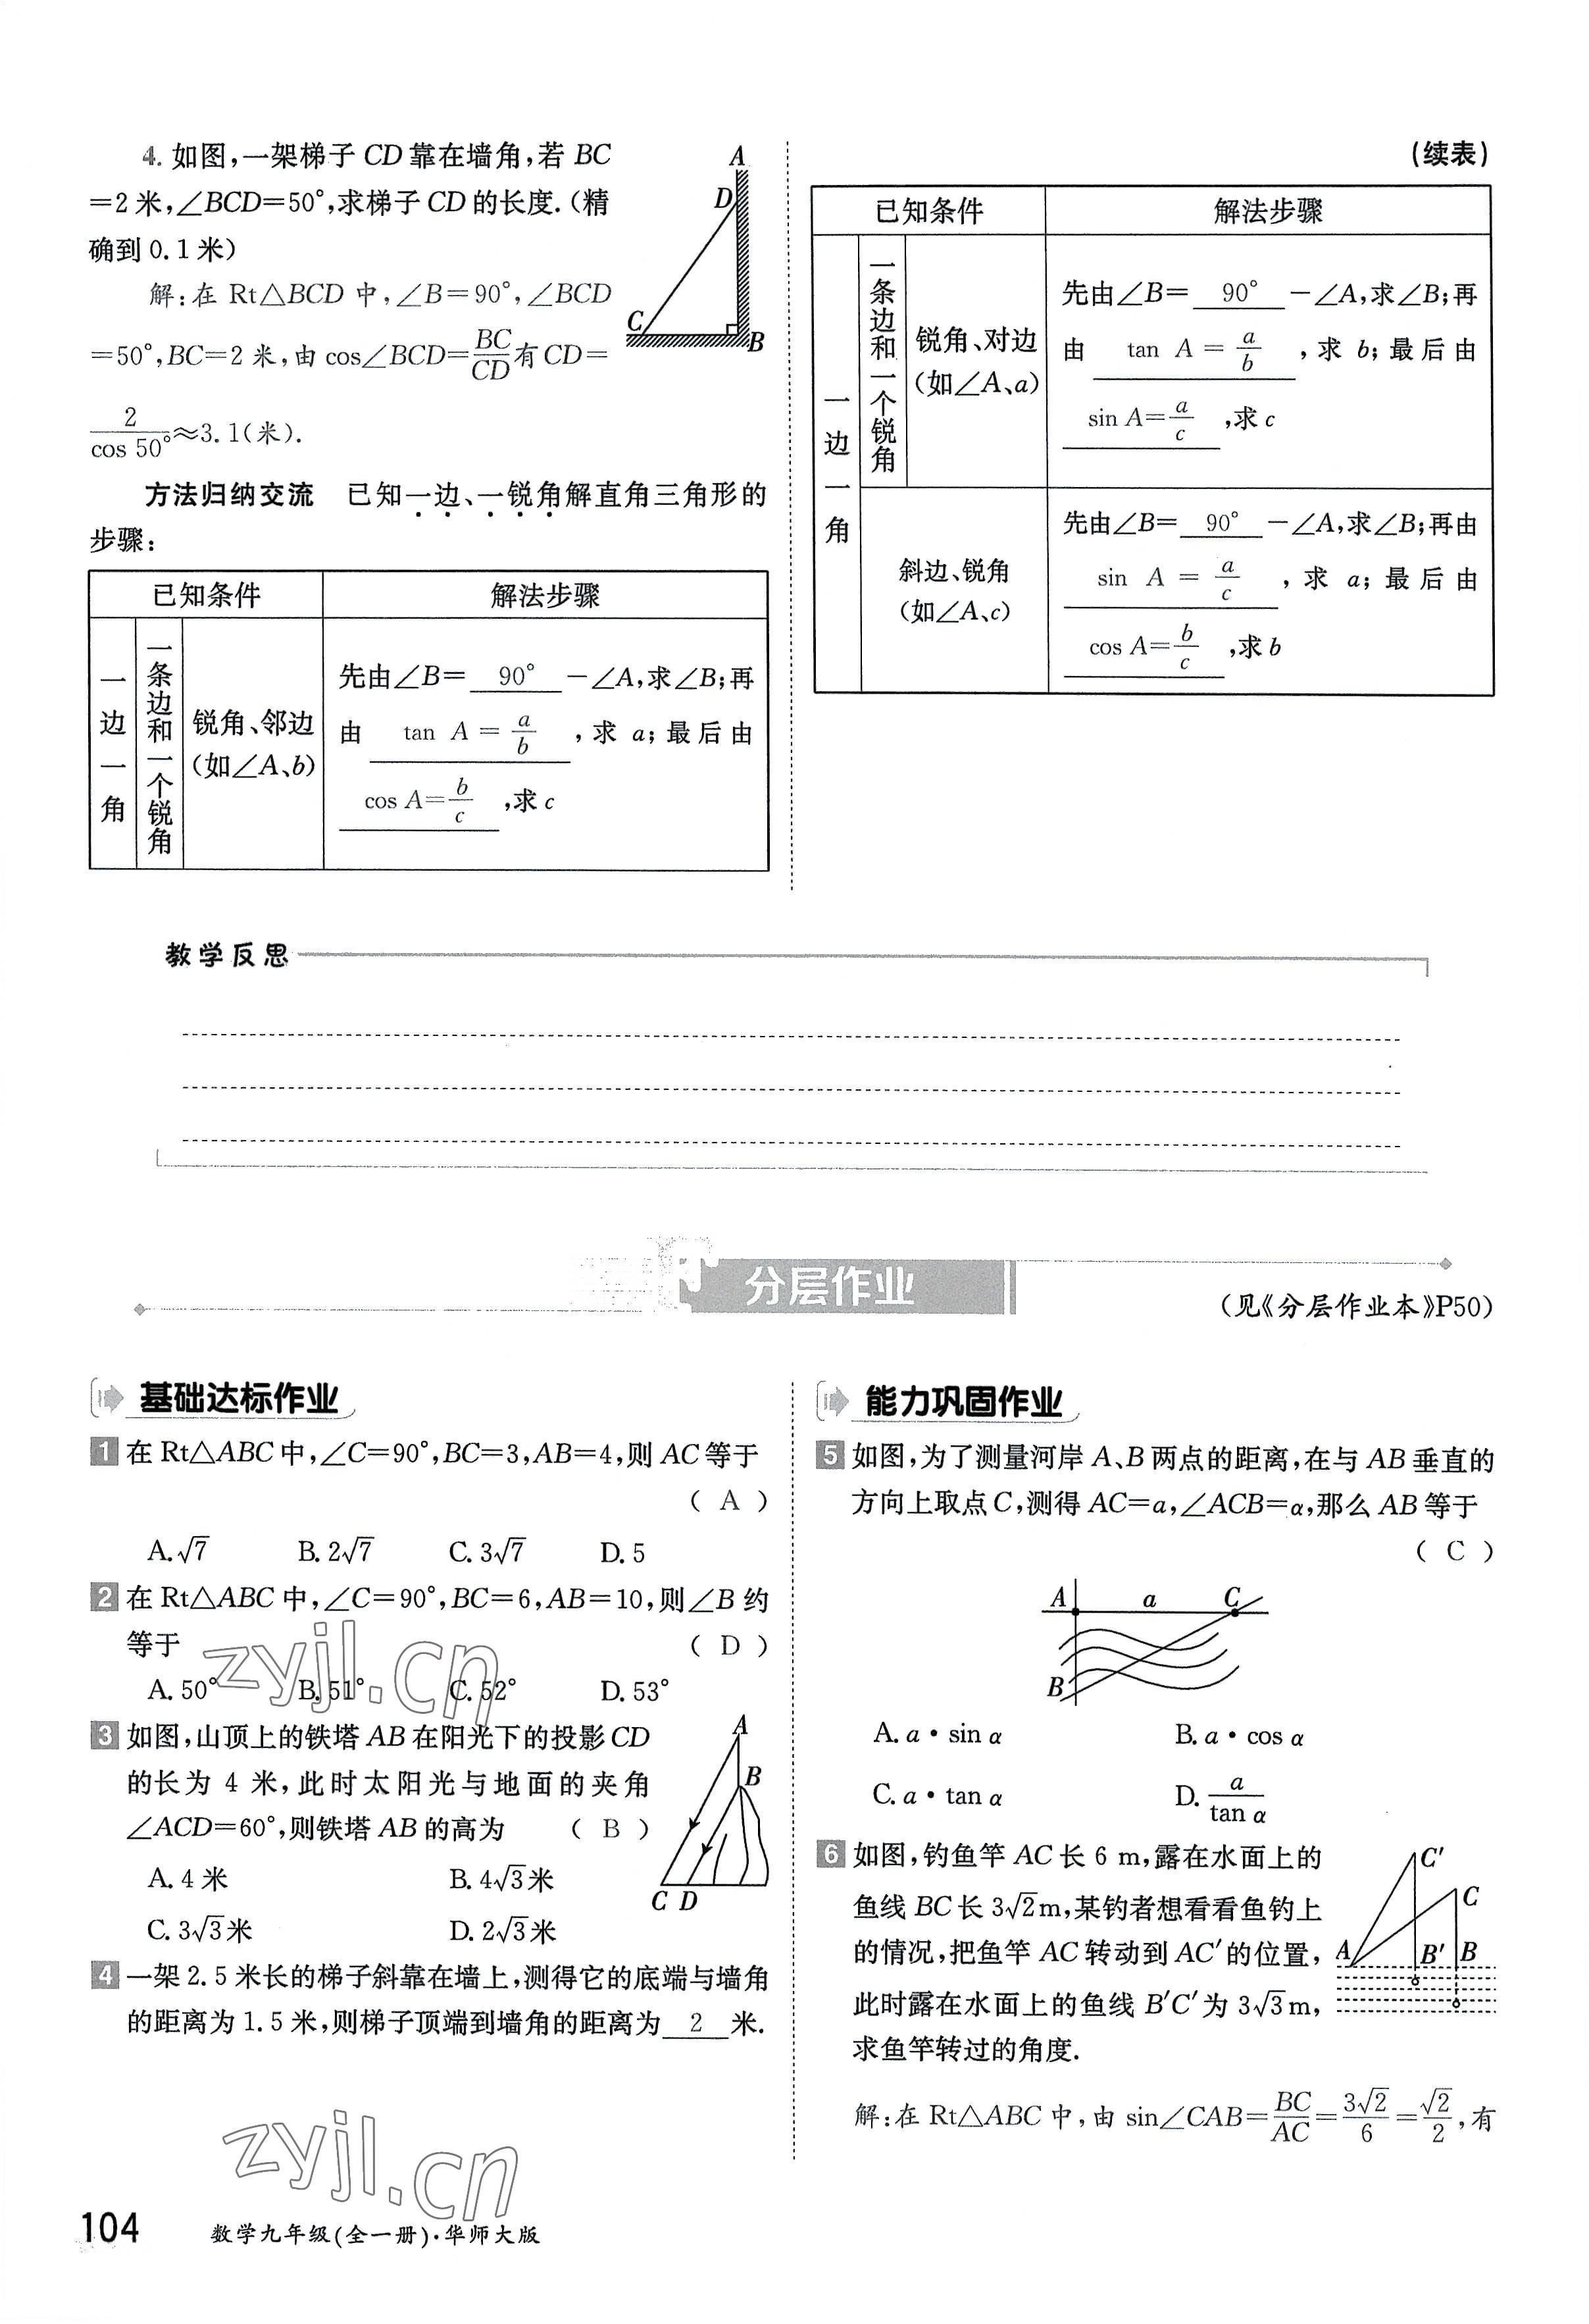 4. 如图,一架梯子 CD 靠在墙角,若 BC
=2 米,∠BCD=50°,求梯子 CD 的长度.(精
确到 0.1 米)
解:在 Rt△BCD 中,∠B=90°,∠BCD
=50°,BC=2 米,由 cos∠BCD=BC/CD有 CD=
2/cos 50°≈3.1(米).
A
D
C
B
方法归纳交流 已知一边、一锐角解直角三角形的
步骤:
已知条件 解法步骤
一边一角
一条边和一个锐角
锐角、邻边
(如∠A、b)
先由∠B= 90° −∠A,求∠B;再
由 tan A = a/b ,求 a;最后由
cos A=b/c ,求 c
(续表)
已知条件 解法步骤
一边一角
一条边和一个锐角
锐角、对边
(如∠A、a)
先由∠B= 90° −∠A,求∠B;再
由 tan A = a/b ,求 b;最后由
sin A=a/c ,求 c
斜边、锐角
(如∠A、c)
先由∠B= 90° −∠A,求∠B;再由
sin A = a/c ,求 a;最后由
cos A=b/c ,求 b
教学反思
分层作业
(见《分层作业本》P50)
基础达标作业
1 在 Rt△ABC 中,∠C=90°,BC=3,AB=4,则 AC 等于
( A )
A.√7 B.2√7 C.3√7 D.5
2 在 Rt△ABC 中,∠C=90°,BC=6,AB=10,则∠B 约
等于 ( D )
A.50° B.51° C.52° D.53°
3 如图,山顶上的铁塔 AB 在阳光下的投影 CD
的长为 4 米,此时太阳光与地面的夹角
∠ACD=60°,则铁塔 AB 的高为 ( B )
A.4 米 B.4√3米
C.3√3米 D.2√3米
A
B
C D
4 一架 2.5 米长的梯子斜靠在墙上,测得它的底端与墙角
的距离为 1.5 米,则梯子顶端到墙角的距离为 2 米.
能力巩固作业
5 如图,为了测量河岸 A、B 两点的距离,在与 AB 垂直的
方向上取点 C,测得 AC=a,∠ACB=α,那么 AB 等于
( C )
A a C
B
A.a·sin α B.a·cos α
C.a·tan α D.a/tan α
6 如图,钓鱼竿 AC 长 6 m,露在水面上的
鱼线 BC 长 3√2m,某钓者想看看鱼钓上
的情况,把鱼竿 AC 转动到 AC′的位置,
此时露在水面上的鱼线 B′C′为 3√3m,
求鱼竿转过的角度.
C′
C
A B′ B
解:在 Rt△ABC 中,由 sin∠CAB=BC/AC=3√2/6=√2/2,有
zyjl.cn
zyjl.cn
104
数学九年级(全一册)·华师大版